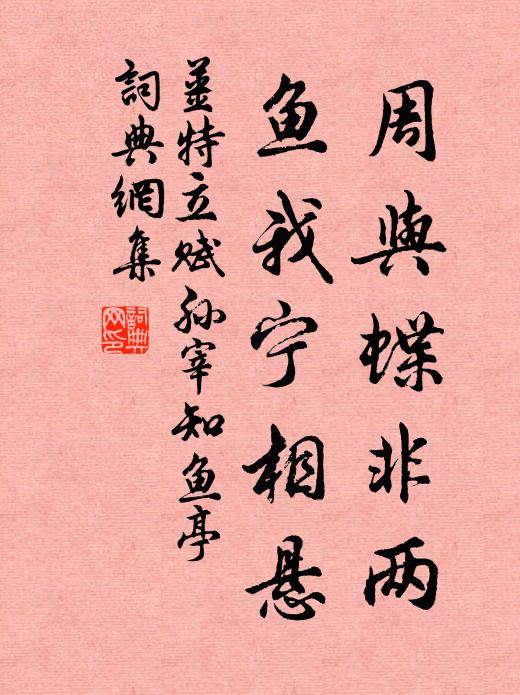 周與蝶非两
鱼我宁相悬
姜特立赋孙宰知鱼亭
詞典網集
詞典网印